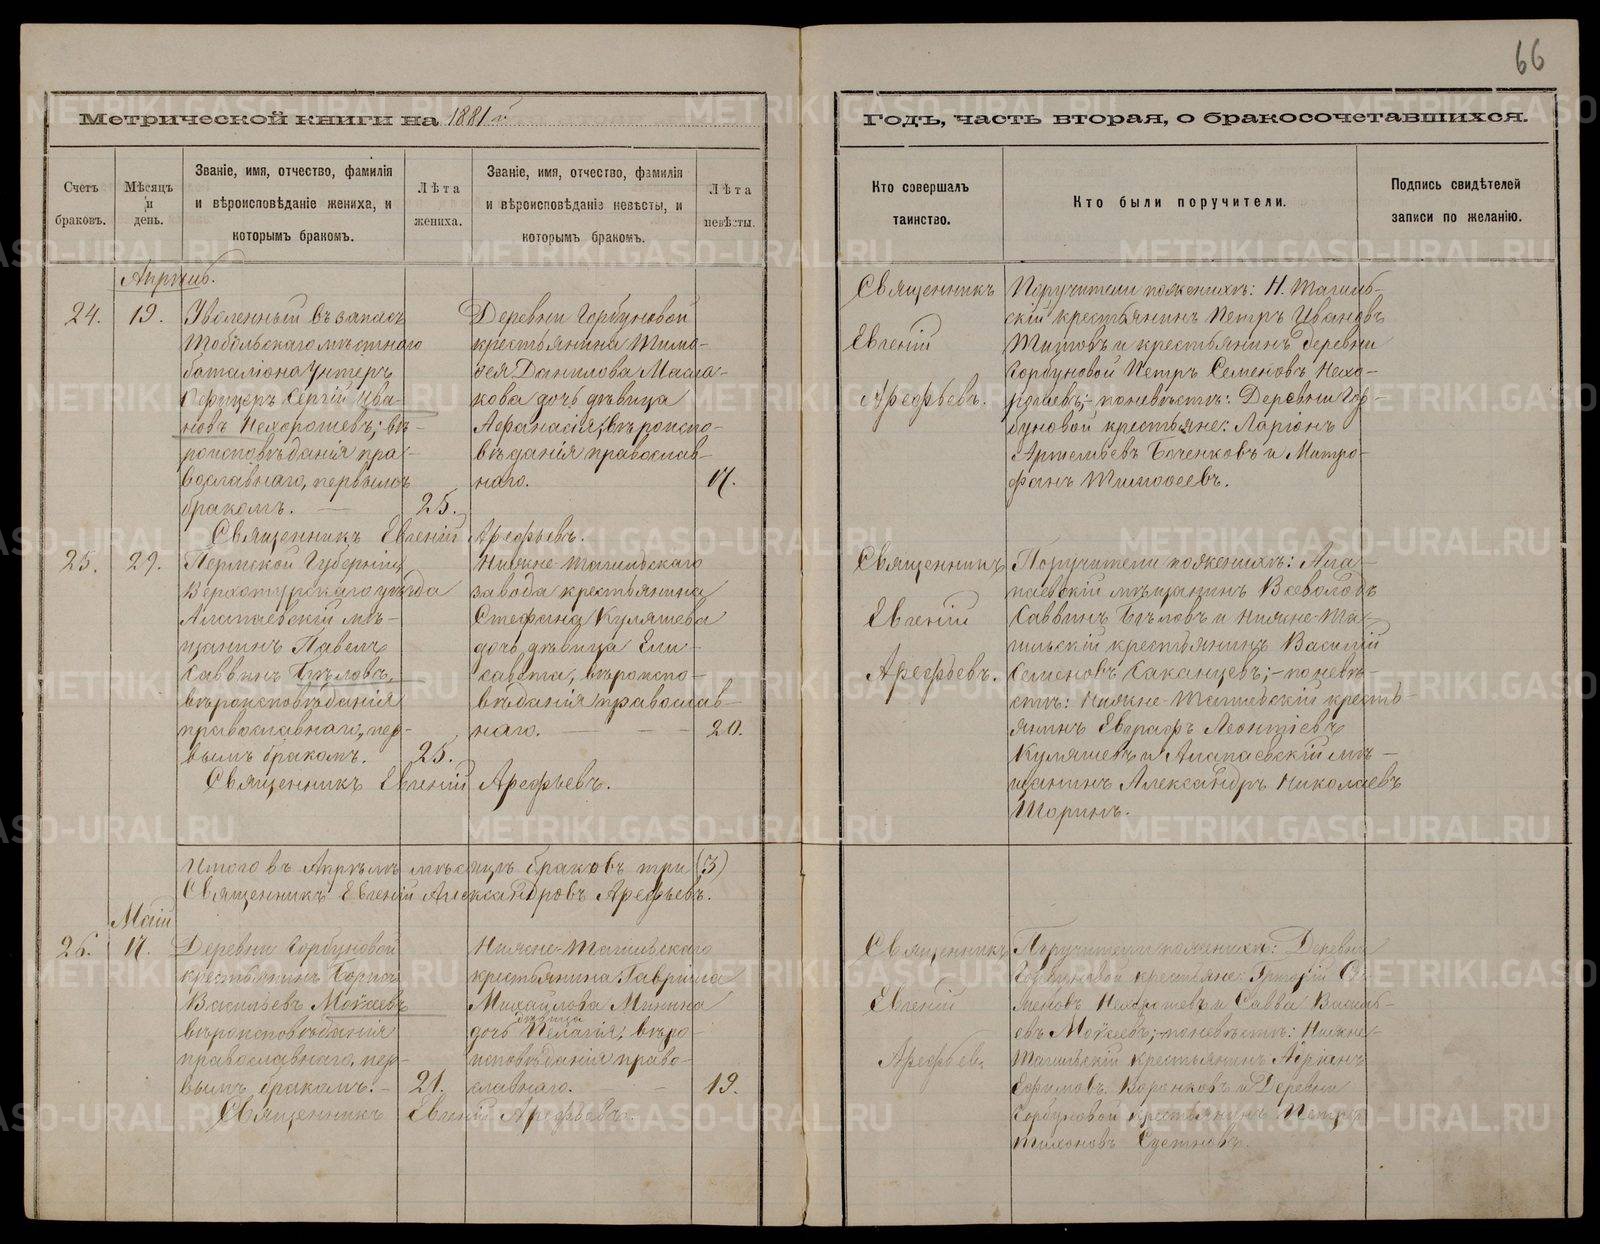 66
Метрической книги на 1881 й
Годъ, часть вторая, о бракосочетавшихся.
Счетъ браковъ.
Мѣсяцъ и день.
Званіе, имя, отчество, фамилія
и вѣроисповѣданіе жениха, и
которымъ бракомъ.
Лѣта жениха.
Званіе, имя, отчество, фамилія
и вѣроисповѣданіе невѣсты, и
которымъ бракомъ.
Лѣта невѣсты.
Кто совершалъ
таинство.
Кто были поручители.
Подпись свидѣтелей
записи по желанію.
Апрѣль.
24.
19.
Уволенный въ запасъ
Тобольскаго мѣстнаго
баталіона Унтеръ
Офицеръ Сергій Ива-
новъ Нехорошевъ; вѣ-
роисповѣданія пра-
вославнаго, первымъ
бракомъ.
25.
Деревни Горбуновой
крестьянина Тимо-
ѳея Данилова
дочь дѣвица
Аѳанасія, вѣроиспо-
вѣданія православ-
наго.
17.
Священникъ Евгеній Арефьевъ.
Священникъ
Евгеній
Арефьевъ.
Поручители по женихѣ: Н. Тагиль-
скій крестьянинъ Петръ Ивановъ
Титовъ и крестьянинъ деревни
Горбуновой Петръ Семеновъ Нехо-
рошевъ; - по невѣстѣ: Деревни Гор-
буновой крестьяне: Ларіонъ
Артемьевъ Боченковъ и Митро-
фанъ Тимоѳеевъ.
25.
29.
Пермской Губерніи,
Верхотурскаго уѣзда
Алапаевскій мѣ-
щанинъ Павелъ
Саввинъ Бѣловъ,
вѣроисповѣданія
православнаго, пер-
вымъ бракомъ.
25.
Нижне-Тагильскаго
завода крестьянина
Стефана Куляшева
дочь дѣвица Ели-
савета, вѣроиспо-
вѣданія православ-
наго.
20.
Священникъ Евгеній Арефьевъ.
Священникъ
Евгеній
Арефьевъ.
Поручители по женихѣ: Ала-
паевскій мѣщанинъ Всеволодъ
Саввинъ Бѣловъ и Нижне-Та-
гильскій крестьянинъ Василій
Семеновъ Саканцевъ; - по невѣ-
стѣ: Нижне-Тагильскій кресть-
янинъ Евграфъ Леонтіевъ
Куляшевъ и Алапаевскій мѣ-
щанинъ Александръ Николаевъ
Шоринъ.
Итого въ Апрѣлѣ мѣсяцѣ браковъ три (3)
Священникъ Евгеній Александровъ Арефьевъ.
Маій
26.
17.
Деревни Горбуновой
крестьянинъ Борисъ
Васильевъ Моисеевъ
вѣроисповѣданія
православнаго, пер-
вымъ бракомъ. -
21.
Нижне-Тагильскаго
крестьянина Гавріила
Михайлова Минина
дочь дѣвица Пелагія; вѣро-
исповѣданія право-
славнаго.
19.
Священникъ Евгеній Арефьевъ.
Священникъ
Евгеній
Арефьевъ
Поручители по женихѣ: Деревни
Горбуновой крестьяне: Григорій Се-
меновъ Нехорошевъ и Савва Василь-
евъ Моисеевъ; - по невѣстѣ: Нижне-
Тагильскій крестьянинъ Адріанъ
Ефимовъ Воронковъ и Деревни
Горбуновой крестьянинъ Петръ
Тихоновъ
METRIKI.GASO-URAL.RU